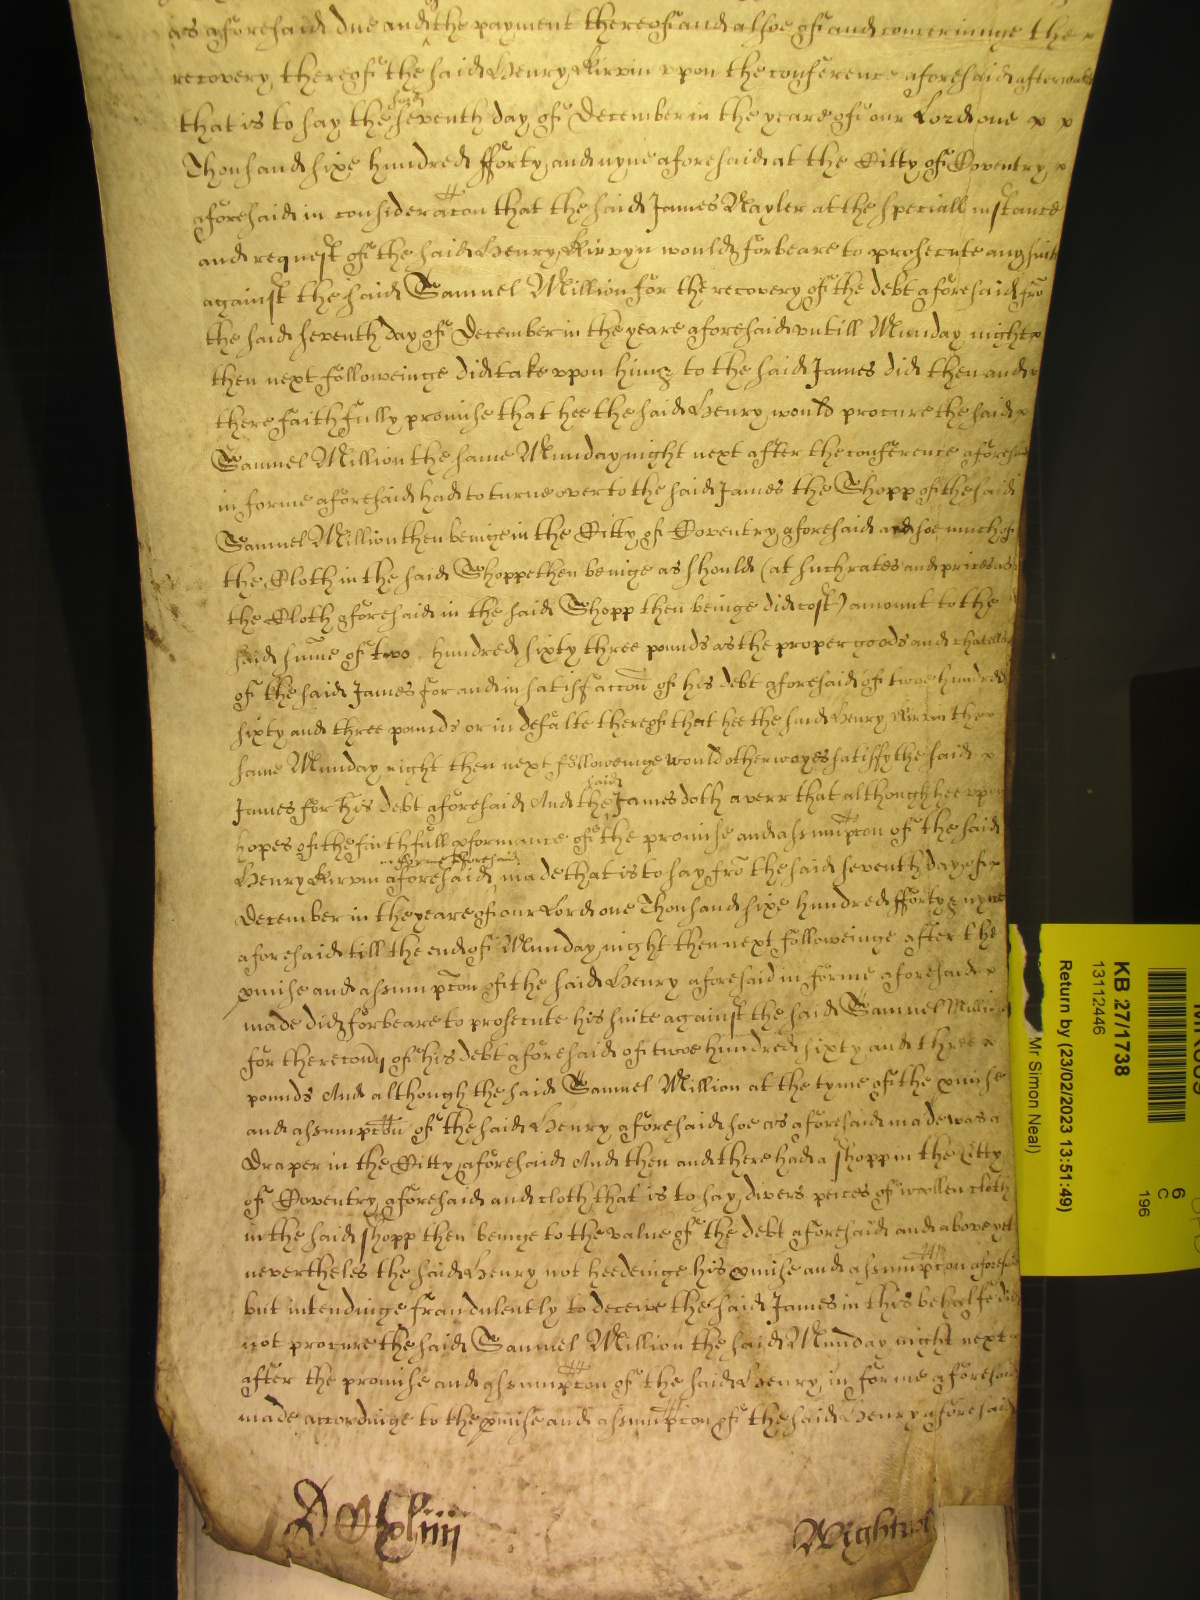 as aforesaid due and the payment thereof and alsoe of and concerninge the
recovery thereof the said Henry Kirvin vpon the conference aforesaid afterwards
that is to say the said seventh day of December in the yeare of our Lord one x x
Thousand sixe hundred fforty and nyne aforesaid at the Citty of Coventry x
aforesaid in consideracon that the said James Nayler at the speciall instance
and request of the said Henry Kirvyn would forbeare to prosecute any suit
against the said Samuel Million for the recovery of the debt aforesaid fro
the said seventh day of December in the yeare aforesaid vntill Munday night x
then next followeinge did take vpon him & to the said James did then and x
there faithfully promise that hee the said Henry would procure the said x
Samuel Million the same Munday night next after the conference aforesaid
in forme aforesaid had to turne over to the said James the Shopp of the said
Samuel Million then beinge in the Citty of Coventry aforesaid and soe much of
the Cloth in the said Shoppe then beinge as should (at such rates and prices as
the Cloth aforesaid in the said Shopp then beinge did cost) amount to the
said sume of two hundred sixty three pounds as the proper goods and chattells
of the said James for and in satisfaccon of his debt aforesaid of twoe hundred
sixty and three pounds or in defalte thereof that hee the said Henry Kirvin the
same Munday night then next followeinge would otherwayes satisfy the said x
James for his debt aforesaid And the said James doth averr that although hee vpon
hopes of the faithfull pformance of the promise and assumpcon of the said
Henry Kirvin aforesaid in forme aforesaid made that is to say fro the said seventh day of x
December in the yeare of our Lord one Thousand sixe hundred fforty & nyne
aforesaid till the end of Munday night then next followeinge after the
pmise and assumpcon of the said Henry aforesaid in forme aforesaid x
made did forbeare to prosecute his suite against the said Samuel Million
for the recouy of his debt aforesaid of twoe hundred sixty and three x
pounds And although the said Samuel Million at the tyme of the pmise
and assumpcon of the said Henry aforesaid soe as aforesaid made was a
Draper in the Citty aforesaid And then and there had a shopp in the Citty
of Coventry aforesaid and cloth that is to say divers peices of wollen cloth
in the said shopp then beinge to the value of the debt aforesaid and above yet
nevertheles the said Henry not heedeinge his pmise and assumpcon aforesaid
but intendinge fraudulently to deceive the said James in this behalfe did
not procure the said Samuel Million the said Munday night next
after the promise and assumpcon of the said Henry in forme aforesaid
made accordinge to the pmise and assumpcon of the said Henry aforesaid
KB 27/1738
13112446
Return by (23/02/2023 13:51:49)
Mr Simon Neal)
6
C
196